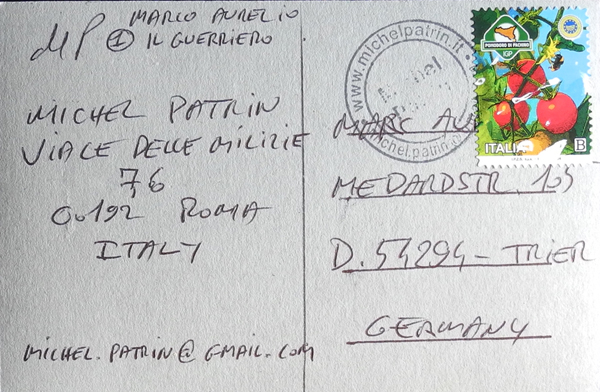 MP ① MARCO AURELIO
IL GUERRIERO
MICHEL PATRIN
VIALE DELLE MILIZIE
76
00192 ROMA
ITALY
MICHEL.PATRIN@GMAIL.COM
www.michelpatrin.it
michelpatrin.it
POMODORO DI PACHINO
IGP
ITALIA B
MARC AU
MEDARDSTR. 105
D.54294-TRIER
GERMANY